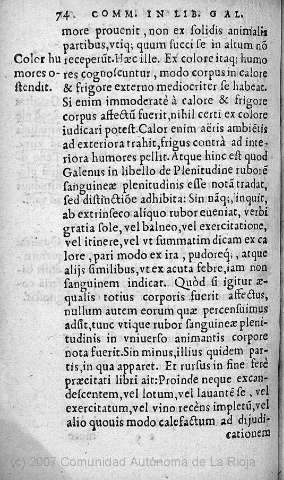 74. COMM. IN LIB. GAL.
more prouenit, non ex solidis animalis
partibus, vtiq; quum succi se in altum nõ
Color hu receperũt. Hæc ille. Ex colore itaq; humo
mores o- res cognoscuntur, modo corpus in calore
stendit. & frigore externo mediocriter se habeat.
Si enim immoderatè à calore & frigore
corpus affectũ fuerit, nihil certi ex colore
iudicari potest. Calor enim aëris ambiẽtis
ad exteriora trahit, frigus contrà ad inte-
riora humores pellit. Atque hinc est quod
Galenus in libello de Plenitudine ruborẽ
sanguineæ plenitudinis esse notã tradat,
sed distinctiõe adhibita: Sin nãq;, inquit,
ab extrinseco aliquo rubor eueniat, verbi
gratia sole, vel balneo, vel exercitatione,
vel itinere, vel vt summatim dicam ex ca
lore, pari modo ex ira, pudoreq;, atque
alijs similibus, vt ex acuta febre, iam non
sanguinem indicat. Quòd si igitur æ-
qualis totius corporis fuerit affectus,
nullum autem eorum quæ percensuimus
adsit, tunc vtique rubor sanguineæ pleni-
tudinis in vniuerso animantis corpore
nota fuerit. Sin minus, illius quidem par-
tis, in qua apparet. Et rursus in fine ferè
præcitati libri ait: Proinde neque excan-
descentem, vel lotum, vel lauantẽ se, vel
exercitatum, vel vino recẽns impletũ, vel
alio quouis modo calefactum ad dijudi-
cationem
(c) 2007 Comunidad Autónoma de La Rioja